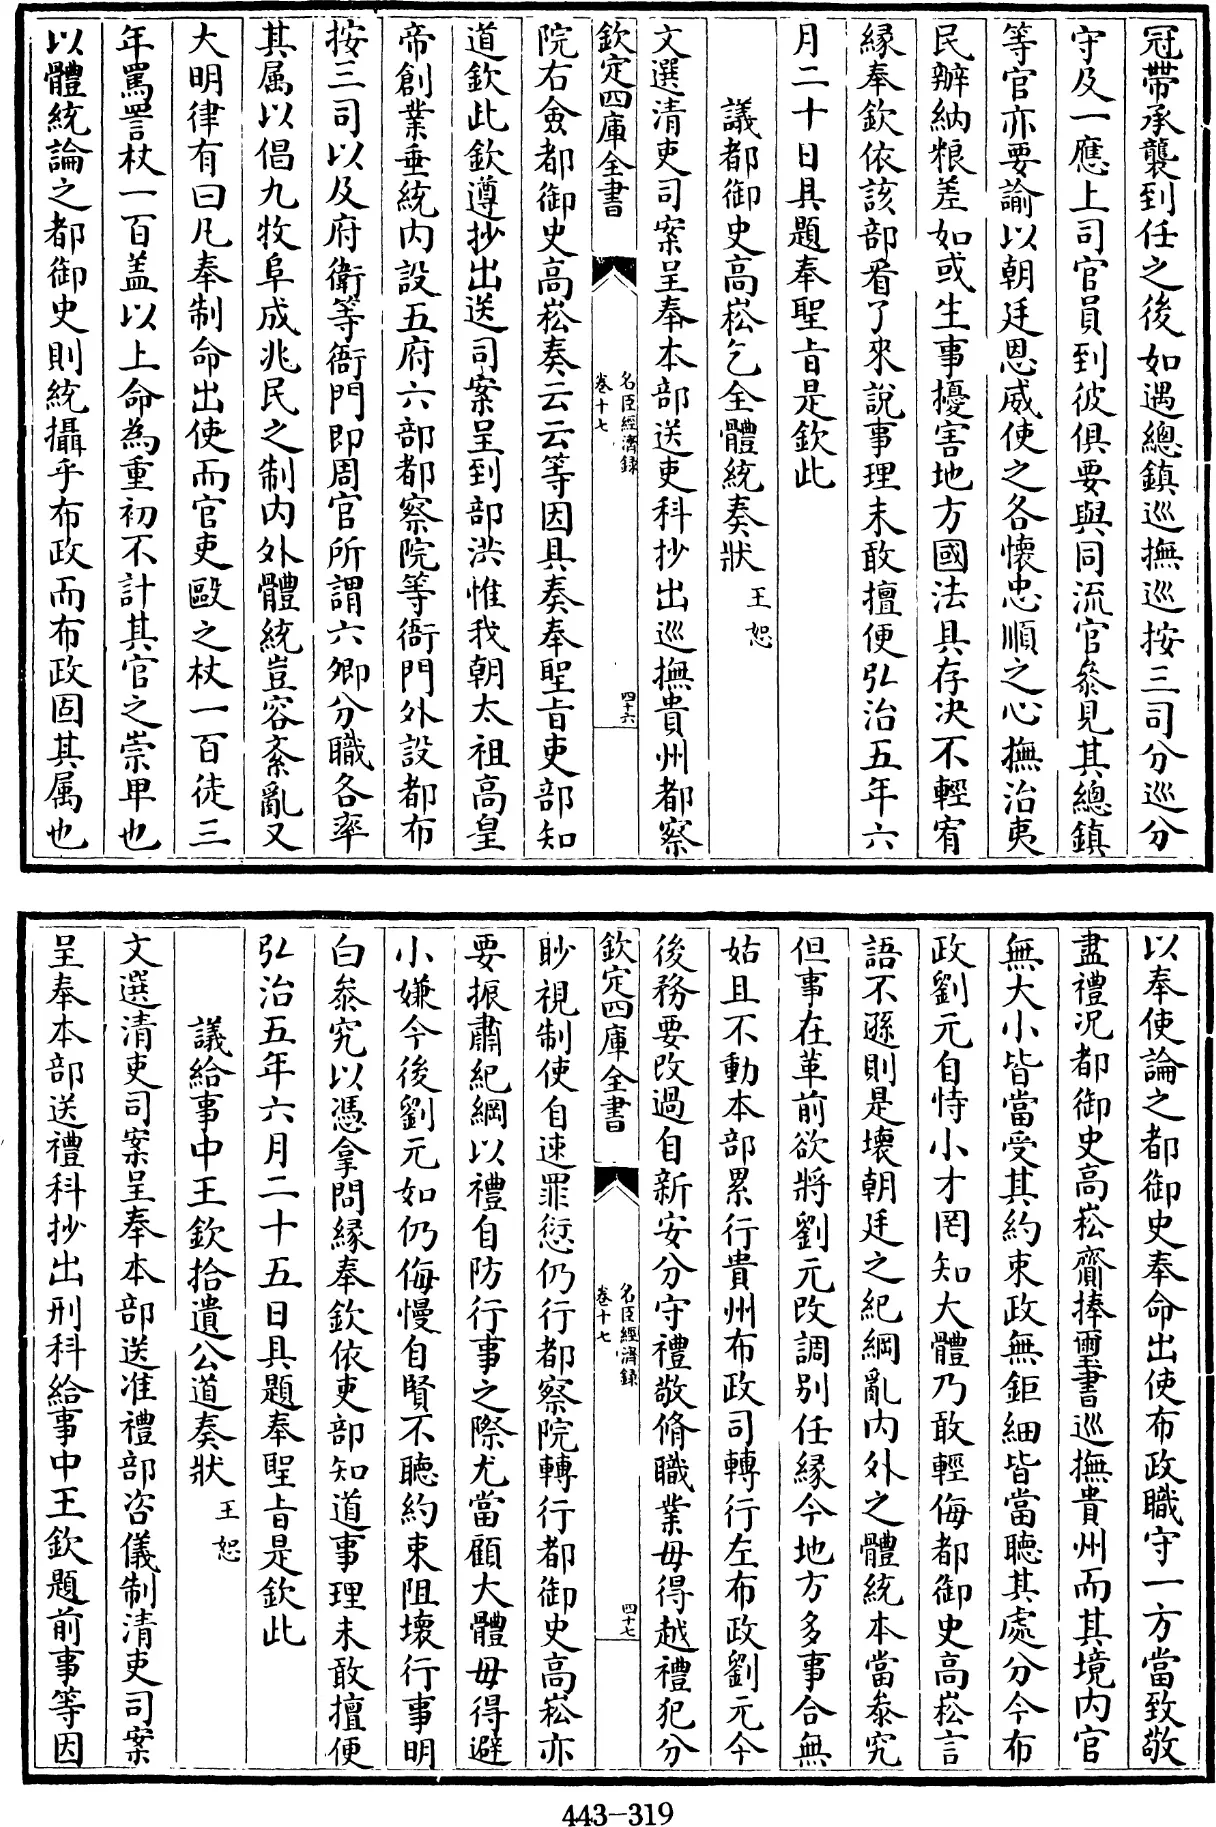 冠帶承襲到任之後如遇總鎮巡撫巡按三司分巡分
守及一應上司官員到彼俱要與同流官叅見其總鎮
等官亦要諭以朝廷恩威使之各懐忠順之心撫治夷
民辦納粮差如或生事擾害地方國法具存决不輕宥
縁奉欽依該部看了來說事理未敢擅便弘治五年六
月二十日具題奉聖旨是欽此
議都御史髙崧乞全體統奏狀 王恕
文選清吏司案呈奉本部送吏科抄出巡撫貴州都察
欽定四庫全書
名臣經濟録
卷十七
四十六
院右僉都御史髙崧奏云云等因具奏奉聖旨吏部知
道欽此欽遵抄出送司案呈到部洪惟我朝太祖高皇
帝創業垂統内設五府六部都察院等衙門外設都布
按三司以及府衛等衙門即周官所謂六卿分職各率
其属以倡九牧阜成兆民之制内外體統豈容紊亂又
大明律有曰凡奉制命出使而官吏毆之杖一百徒三
年罵詈杖一百盖以上命為重初不計其官之崇卑也
以體統論之都御史則統攝乎布政而布政固其属也
以奉使論之都御史奉命出使布政職守一方當致敬
盡禮况都御史髙崧齎捧璽書巡撫貴州而其境内官
無大小皆當受其約束政無鉅細皆當聴其處分今布
政劉元自恃小才罔知大體乃敢輕侮都御史髙崧言
語不遜則是壞朝廷之紀綱亂内外之體統本當叅究
但事在革前欲將劉元改調别任縁今地方多事合無
姑且不動本部累行貴州布政司轉行左布政劉元今
後務要改過自新安分守禮敬脩職業毋得越禮犯分
欽定四庫全書
名臣經濟録
卷十七
四十七
眇視制使自速罪愆仍行都察院轉行都御史髙崧亦
要振肅紀綱以禮自防行事之際尤當顧大體毋得避
小嫌今後劉元如仍侮慢自賢不聴約束阻壞行事明
白叅究以憑拿問縁奉欽依吏部知道事理未敢擅便
弘治五年六月二十五日具題奉聖旨是欽此
議給事中王欽拾遺公道奏狀 王恕
文選清吏司案呈奉本部送准禮部咨儀制清吏司案
呈奉本部送禮科抄出刑科給事中王欽題前事等因
443-319